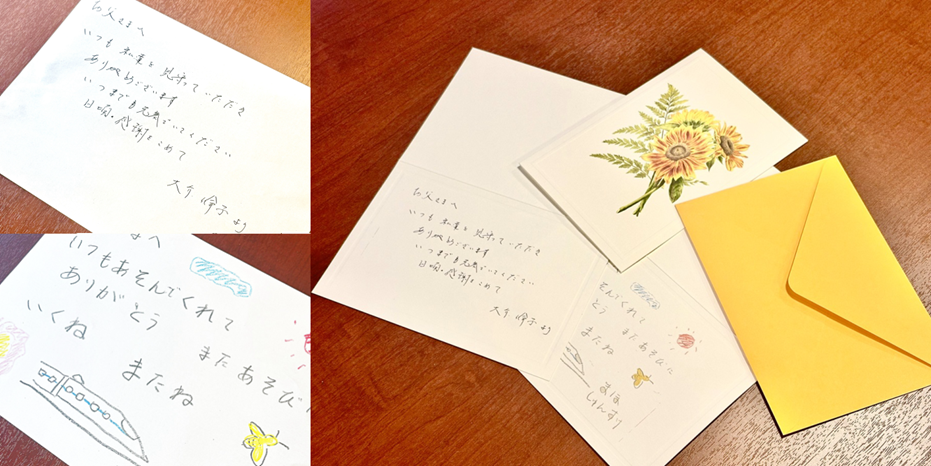 お父さまへ
いつも私達を見守っていただき
ありがとうございます
いつまでも元気でいてください
日頃の感謝をこめて
大介 伸子より
へ
いつもあそんでくれて
ありがとう
またあそび
いくね
またね
お父さまへ
いつも私達を見守っていただき
ありがとうございます
いつまでも元気でいてください
日頃の感謝をこめて
大介 伸子より
そんでくれて
とう またあそびに
またね
まほ
けんより